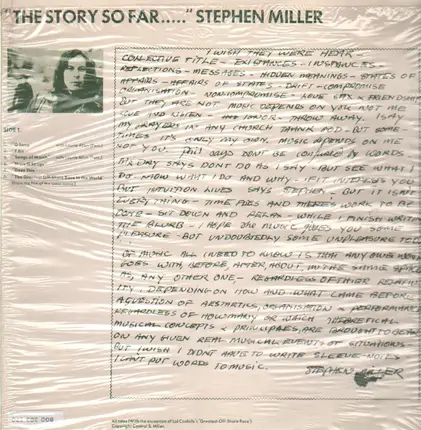 "THE STORY SO FAR....." STEPHEN MILLER
I WISH THEY WERE HEAR -
COLLECTIVE TITLE - EXISTANCES - INSTANCES
REFLECTIONS - MESSAGES - HIDDEN MEANINGS - STATES OF
AFFAIRS - AFFAIRS OF STATES - DRIFT - COMPROMISE
ORGANISATION - NONCOMPROMISE - VALUE OF FRIENDSHIP
BUT THEY ARE NOT MUSIC DEPENDS ON YOU NOT ME
AND WHEN - HONOR - THROW AWAY. I SAY
MY PRAYERS IN ANY CHURCH THANK GOD - BUT SOME-
TIMES IT'S ONLY MY OWN. MUSIC DEPENDS ON ME
NOT YOU. PHIL SAYS DON'T BE CONFUSED BY WORDS
MR DAY SAYS DON'T DO AS I SAY - BUT SEE WHAT I
DO. NOW WHAT I DO AND WHY - IF IT INTERESTS YOU
BUT INTUITION LIVES SAYS STEPHEN - BUT IT ISN'T
EVERYTHING - TIME FLIES AND THERE'S WORK TO BE
DONE - SIT DOWN AND RELAX - WHILE I FINISH WRITING
THE BLURB - I HOPE THE MUSIC GIVES YOU SOME
PLEASURE - BUT UNDOUBTEDLY SOME UNPLEASURE TOO.
OF MUSIC ALL I NEED TO KNOW IS THAT ANY ONE
GOES WITH, BEFORE, AFTER, ABOUT, IN THE SAME SPACE
AS, ANY OTHER ONE, - REGARDLESS OF THEIR
ITY. DEPENDING ON HOW AND WHAT CAME BEFORE
A QUESTION OF AESTHETICS, ORGANISATION & PERFORMANCE
REGARDLESS OF HOW MANY, OR WHICH THEORETICAL
MUSICAL CONCEPTS & PRINCIPALES, ARE BROUGHT TO BEAR
ON ANY GIVEN REAL MUSICAL EVENTS OR SITUATIONS
BUT I WISH I DIDN'T HAVE TO WRITE SLEEVE-NOTES
I CAN'T PUT WORDS TO MUSIC.
STEPHEN MILLER
SIDE 1.
All titles (With the exception of Lol Coxhill's 'Greatest Off-Shore Race')
Copyright Control S. Miller.